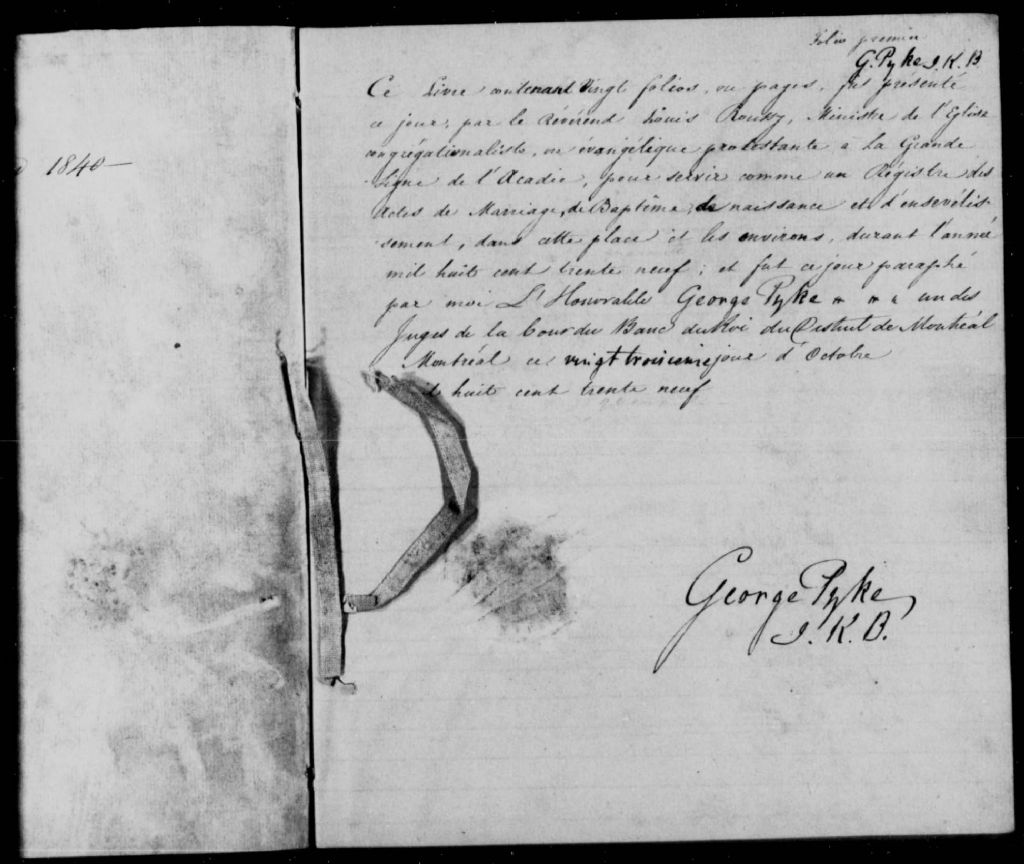 1840
Folio premier
G. Pyke J. K. B
Ce Livre contenant Vingt folios, ou pages, fut présenté
ce jour, par le Révérend Louis Roussy, Ministre de l'Eglise
congrégationaliste, ou évangélique protestante a La Grande
Ligne de l'Acadie, pour servir comme un Régistre des
Actes de Marriage, de Baptême, de naissance et d'ensevélis-
sement, dans cette place et les environs, durant l'année
mil huit cent trente neuf; et fut ce jour paraphé
par moi L'Honorable George Pyke un des
Juges de la Cour du Banc du Roi du District de Montréal
Montréal ce vingt troisieme jour d'Octobre
huit cent trente neuf
George Pyke,
J. K. B.